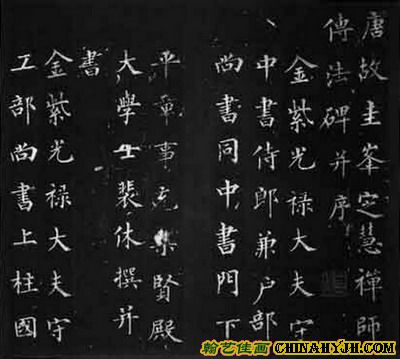 唐故圭峯定慧禪師
傳法碑并序
金紫光禄大夫守
中書侍郎兼户部
尚書同中書門下
平章事充集賢殿
大學士裴休撰并
書
金紫光禄大夫守
工部尚書上柱國
翰艺佳画 CHINAHYJH.COM